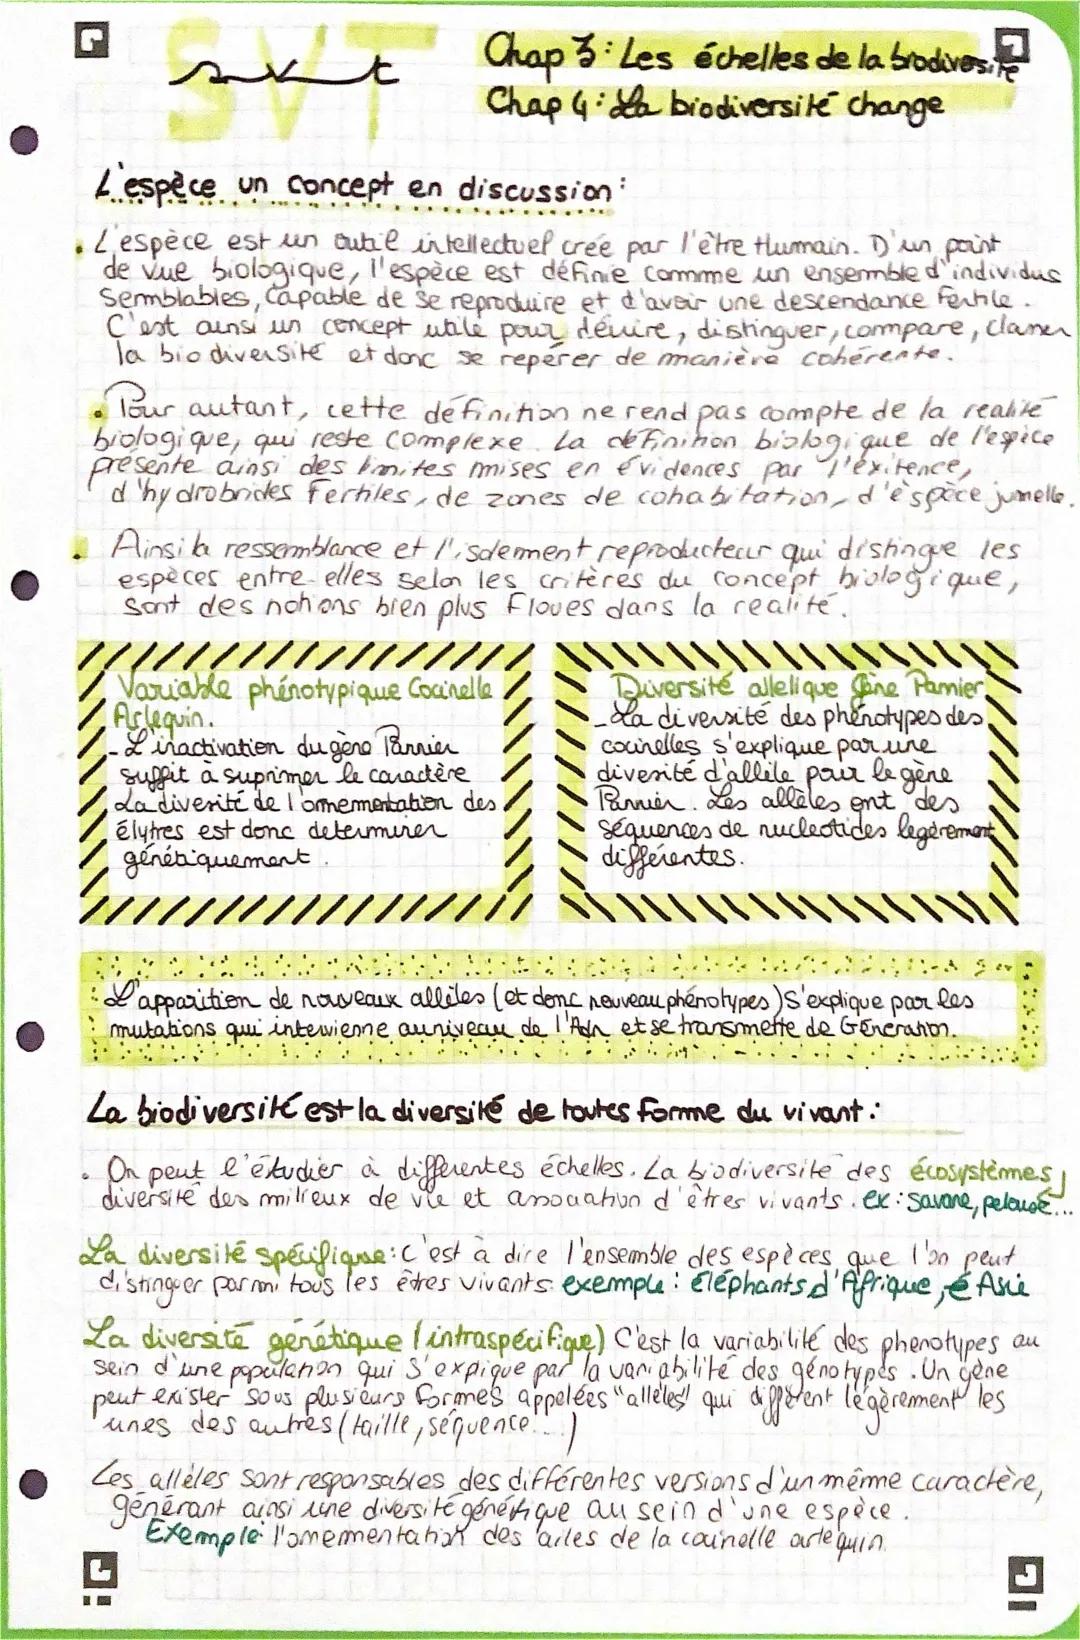 SVT
svt
Chap 3 : Les échelles de la biodiversité
Chap 4 : La biodiversité change
L'espèce un concept en discussion :
• L'espèce est un outil intellectuel crée par l'être Humain. D'un point
de vue biologique, l'espèce est définie commme un ensemble d'individus
Semblables, capable de se reproduire et d'avoir une descendance fertile.
C'est ainsi un concept utile pour décrire, distinguer, compare, classer
la biodiversité et donc se repérer de manière cohérente.
• Pour autant, cette définition ne rend pas compte de la realité
biologique, qui reste complexe. La définition biologique de l'espèce
présente ainsi des limites mises en évidences par l'éxitence,
d'hydrobrides Fertiles, de zones de cohabitation, d'èspèce jumelle.
• Ainsi la ressemblance et l'isolement reproducteur qui distingue les
espèces entre elles selon les critères du concept biologique,
sont des notions bien plus Floues dans la realité.
Variable phénotypique Cocinelle
Arlequin.
- L'inactivation du gène Pannier
suffit à suprimer le caractère
La diverité de l'ornementation des
élytres est donc determiner
génétiquement.
Diversité allelique Gène Pannier
- La diversité des phénotypes des
coccinelles s'explique par une
diversité d'allèle pour le gène
Pannier. Les allèles ont des
séquences de nucleotides legèrement
différentes.
L'apparition de nouveaux allèles (et donc nouveau phénotypes) S'explique par les
mutations qui intervienne au niveau de l'Adn et se transmette de Géneration.
La biodiversité est la diversité de toutes forme du vivant :
• On peut l'étudier à différentes échelles. La biodiversité des écosystèmes,
diversité des milieux de vie et association d'êtres vivants. ex : Savane, pelouse...
La diversité spécifique : c'est à dire l'ensemble des espèces que l'on peut
distinger parmi tous les êtres vivants. exemple : éléphants d'Afrique, é Asie
La diversité génétique (intraspécifique) C'est la variabilité des phenotypes au
sein d'une population qui s'explique par la variabilité des génotypes. Un gène
peut exister sous plusieurs formes appelées "allèles" qui diffèrent légèrement les
unes des autres (taille, séquence...)
Les allèles sont responsables des différentes versions d'un même caractère,
générant ainsi une diversité génétique au sein d'une espèce.
Exemple : l'ornementation des ailes de la coccinelle arlequin.